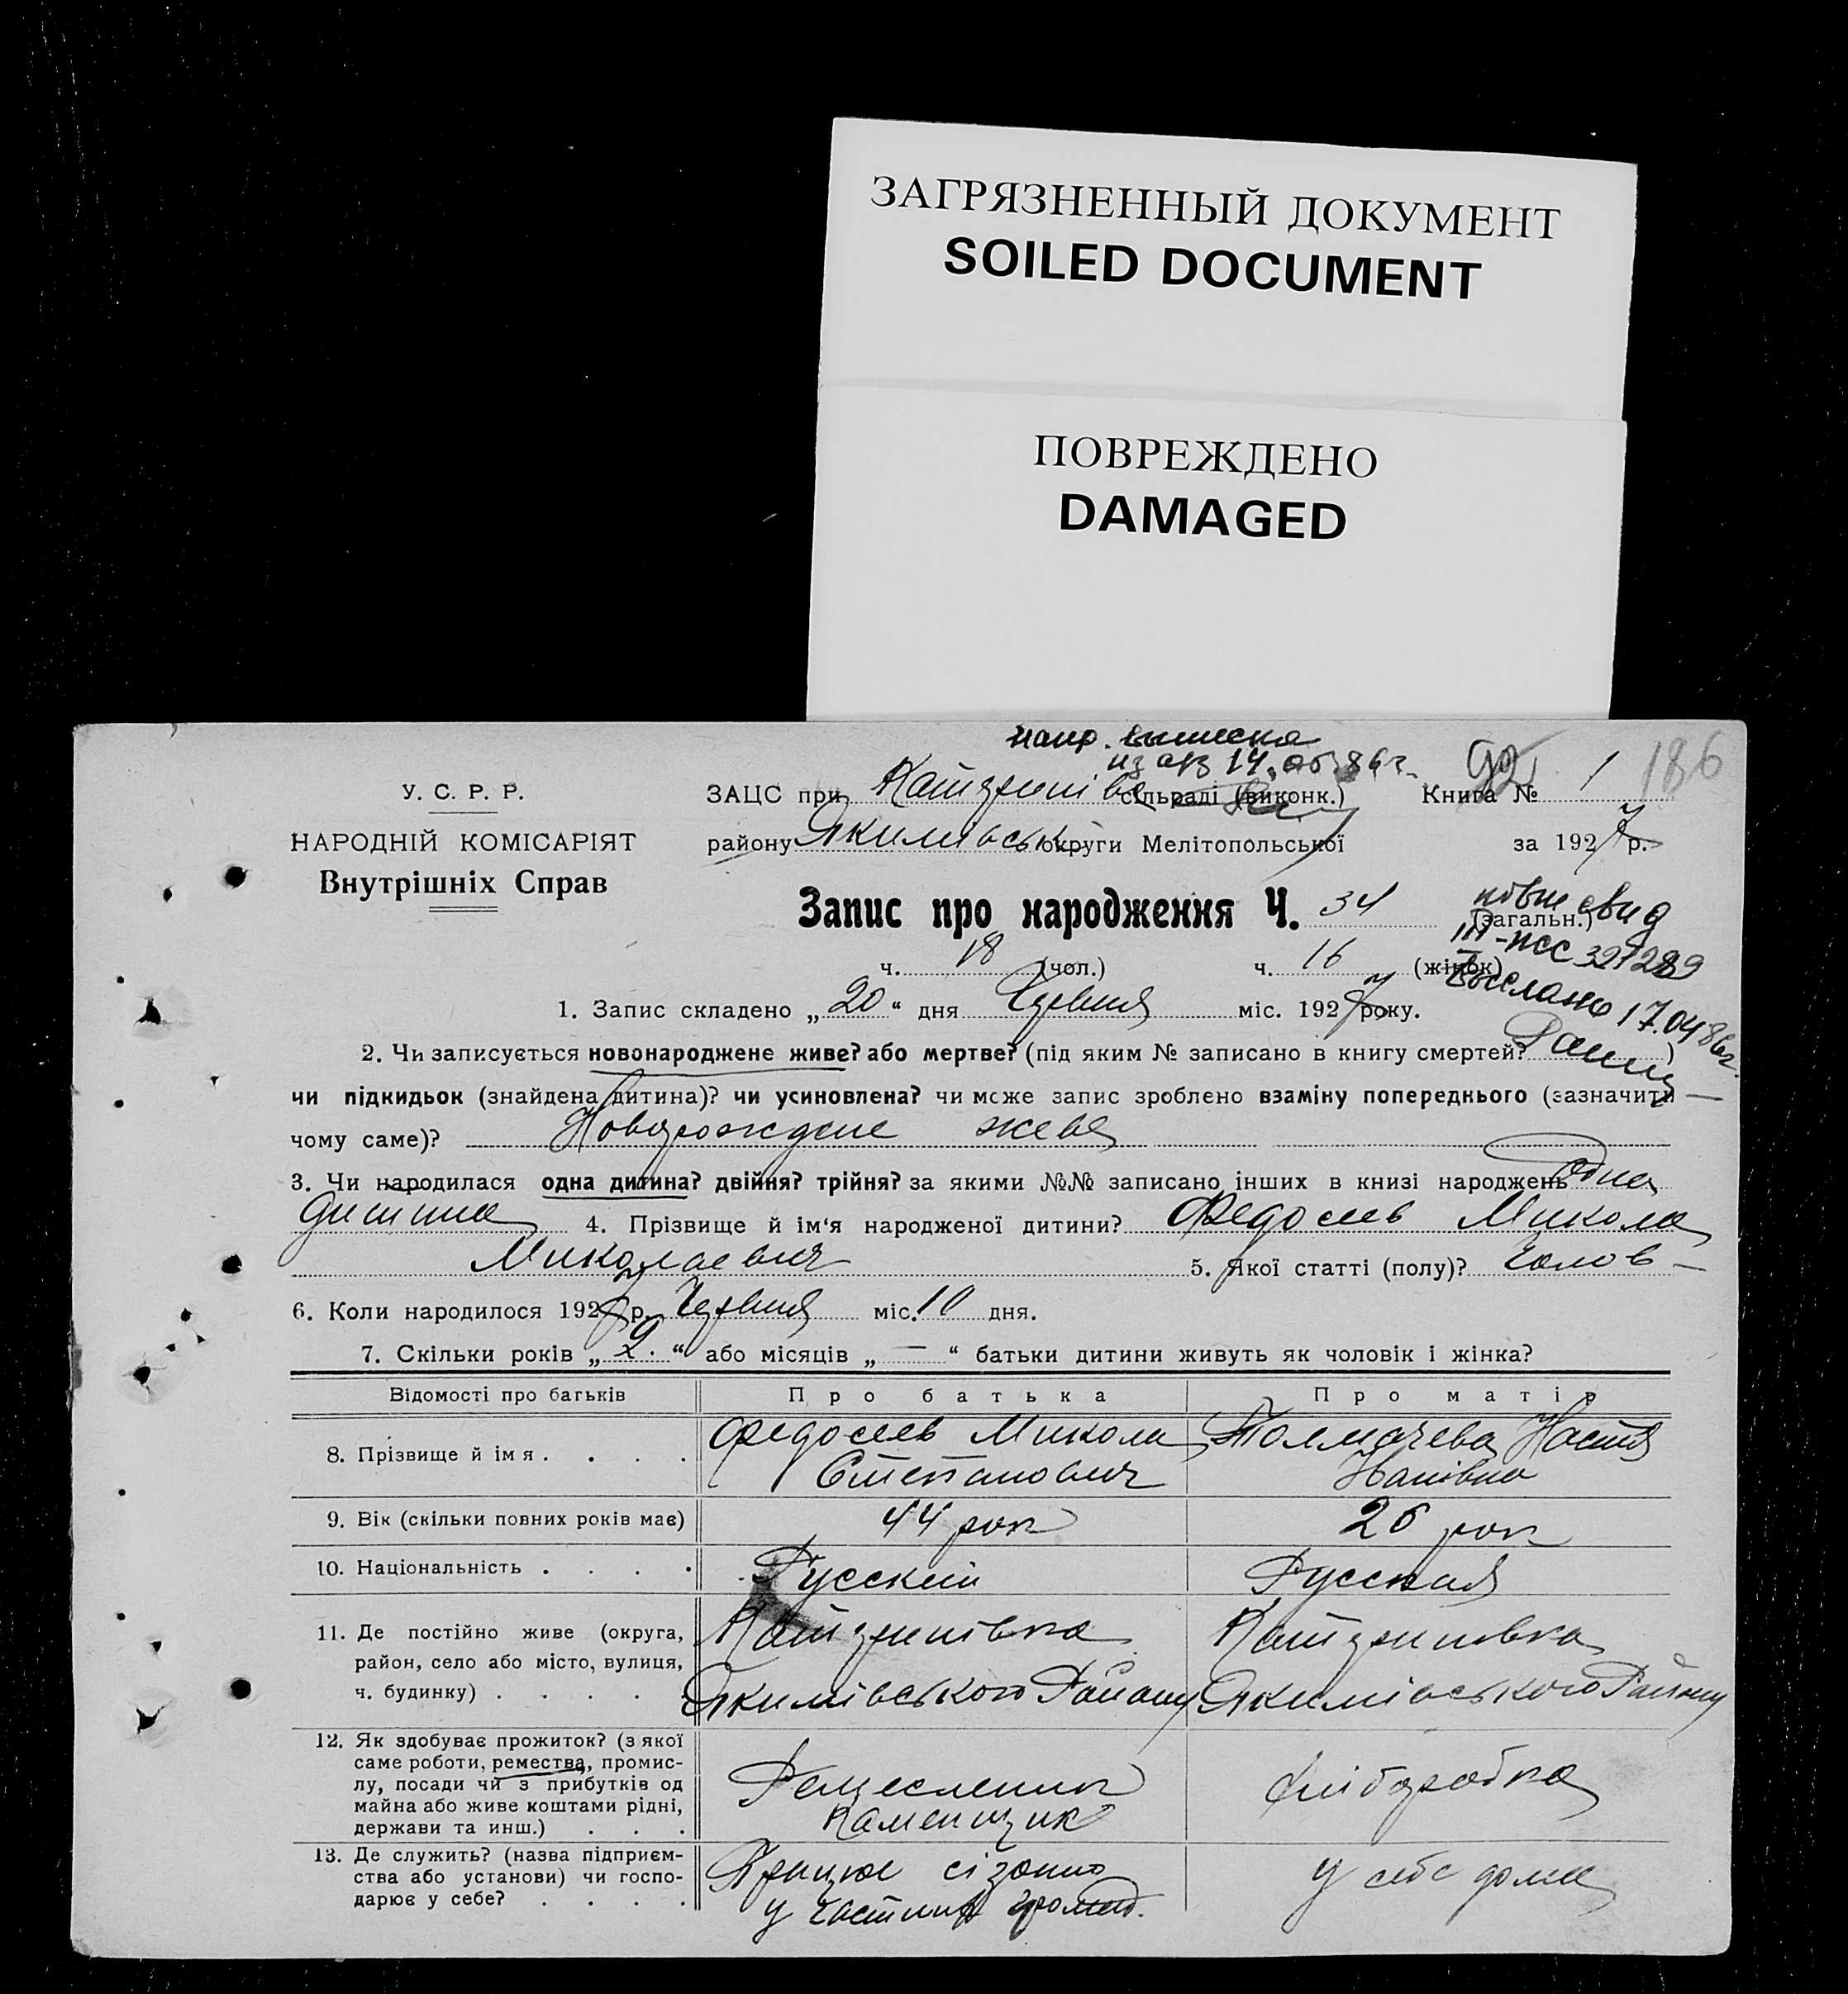 ЗАГРЯЗНЕННЫЙ ДОКУМЕНТ
SOILED DOCUMENT
ПОВРЕЖДЕНО
DAMAGED
186
У. С. Р. Р.
НАРОДНІЙ КОМІСАРІЯТ
Внутрішніх Справ
ЗАЦС при сільраді (виконк.) Книга № 1
району Якимівськ округи Мелітопольської за 1927 р.
Запис про народження Ч. 34 (загальн.)
ч. 18 (чол.) ч. 16 (жінок)
выслано 17.04.86г.
1. Запис складено „ 20 “ дня Червня міс. 1927 року.
2. Чи записується новонароджене живе? або мертве? (під яким № записано в книгу смертей? )
чи підкидьок (знайдена дитина)? чи усиновлена? чи може запис зроблено взаміну попереднього (зазначити
чому саме)? Новорождене живе
3. Чи народилася одна дитина? двійня? трійня? за якими №№ записано інших в книзі народжень одна
дитина 4. Прізвище й ім'я народженої дитини? Федосеев Микола
Миколаевич 5. Якої статті (полу)? Чолов –
6. Коли народилося 1927 р. Червня міс. 10 дня.
7. Скільки років „ 2. “ або місяців „ — “ батьки дитини живуть як чоловік і жінка?
Відомості про батьків Про батька Про матір
8. Прізвище й ім я . . . . Федосеев Микола Толмачева Настя
Степанович Іванівна
9. Вік (скільки повних років має) 44 рок 26 рок
10. Національність . . . . Русский Русская
11. Де постійно живе (округа,
район, село або місто, вулиця,
ч. будинку) . . . . Якимівського Району Якимівського Району
12. Як здобуває прожиток? (з якої
саме роботи, ремества, промис-
лу, посади чи з прибутків од
майна або живе коштами рідні,
держави та инш.) . . . Ремесленик Каменщик Хліборобка
13. Де служить? (назва підприєм-
ства або установи) чи госпо-
дарює у себе? . . . . Працює сізонно у себе дома